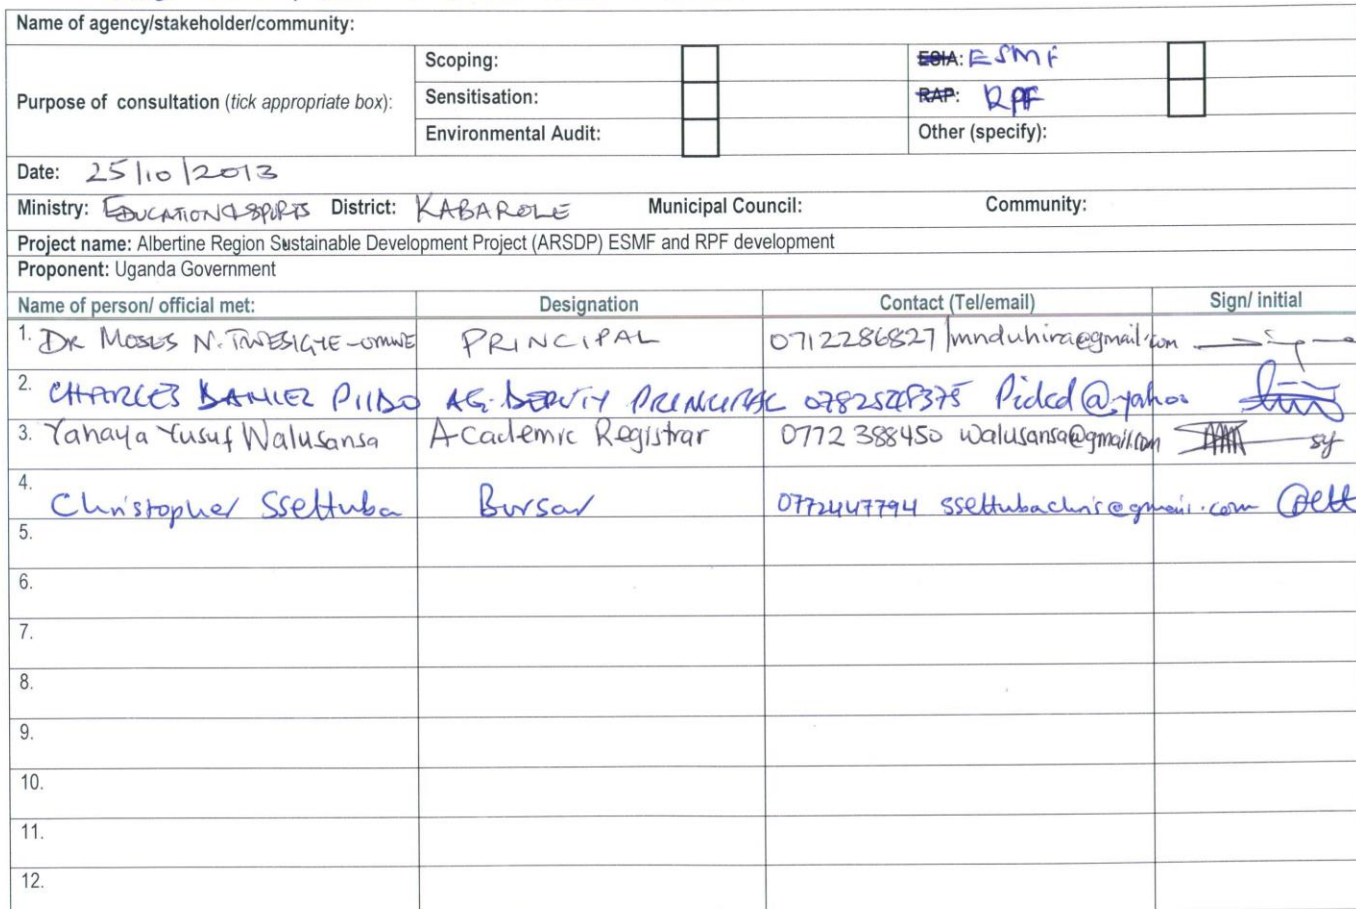 Name of agency/stakeholder/community:
Purpose of consultation (tick appropriate box):
Scoping:
ESIA: ESMF
Sensitisation:
RAP: RPF
Environmental Audit:
Other (specify):
Date: 25/10/2013
Ministry: EDUCATION & SPORTS District: KABAROLE Municipal Council: Community:
Project name: Albertine Region Sustainable Development Project (ARSDP) ESMF and RPF development
Proponent: Uganda Government
Name of person/ official met: Designation Contact (Tel/email) Sign/ initial
1. DR MOSES N. TWESIGYE-OMWE PRINCIPAL 0712286827/mnduhira@gmail.com
2. CHARLES DANIEL PIIDO AG. DEPUTY PRINCIPAL @yahoo
3. Yahaya Yusuf Walusansa Academic Registrar 0772 388450 walusansa@gmail.com
4. Christopher Ssettuba Bursar 0772447794 ssettubachris@gmail.com
5.
6.
7.
8.
9.
10.
11.
12.